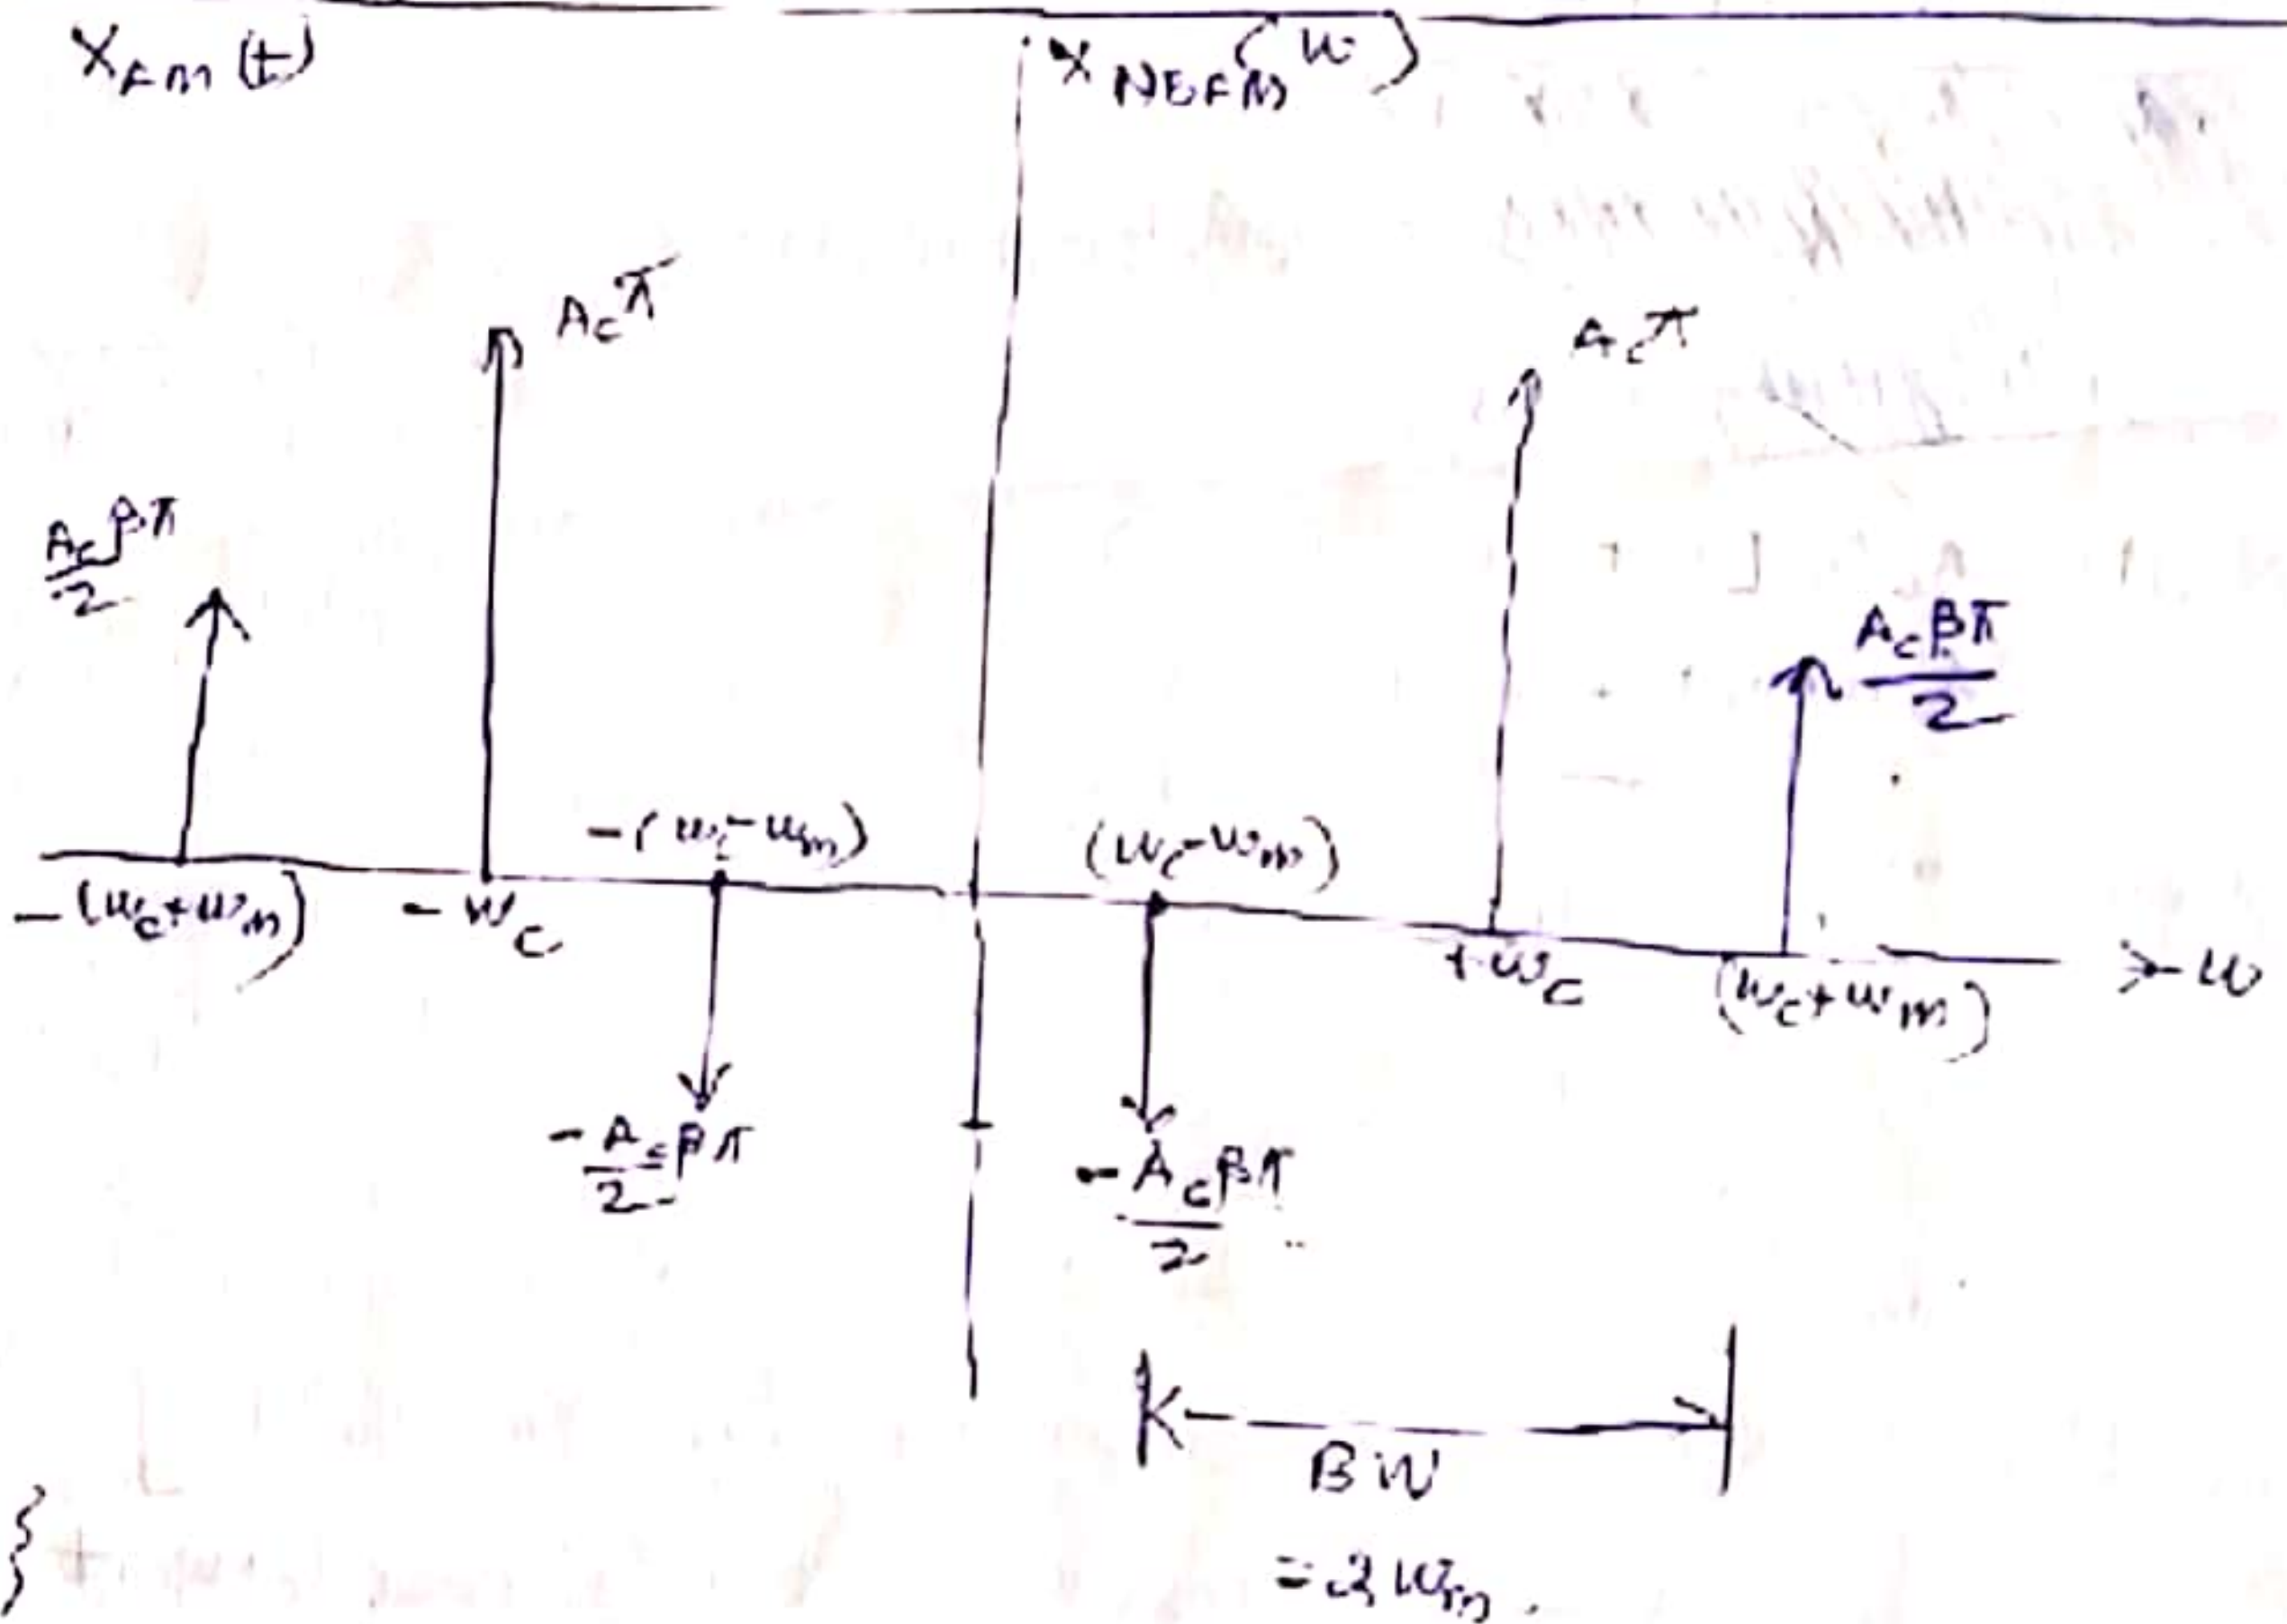 X_FM (t)
X_NBFM (ω)
A_c π
A_c π
A_c βπ / 2
A_c βπ / 2
-(ω_c - ω_m)
(ω_c - ω_m)
-(ω_c + ω_m)
- ω_c
+ ω_c
(ω_c + ω_m)
ω
- A_c / 2 βπ
- A_c βπ / 2
BW
= 2 ω_m .
}